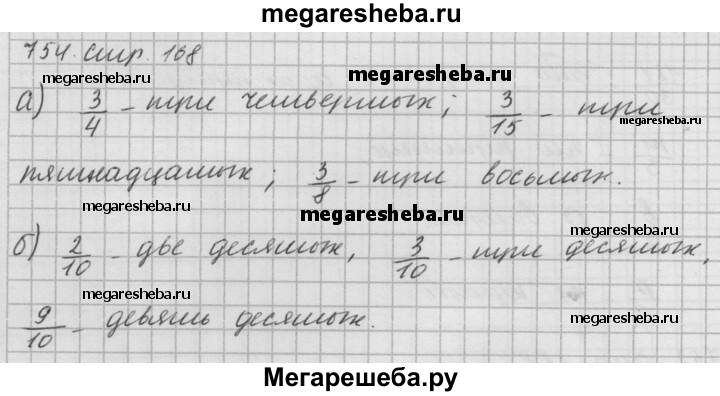 megaresheba.ru
754. стр. 168
megaresheba.ru megaresheba.ru
а) 3/4 - три четвертых; 3/15 - три
megaresheba.ru
пятнадцатых; 3/8 - три восьмых.
megaresheba.ru megaresheba.ru
б) 2/10 - две десятых, 3/10 - три десятых,
megaresheba.ru megaresheba.ru
9/10 - девять десятых.
megaresheba.ru
Мегарешеба.ру